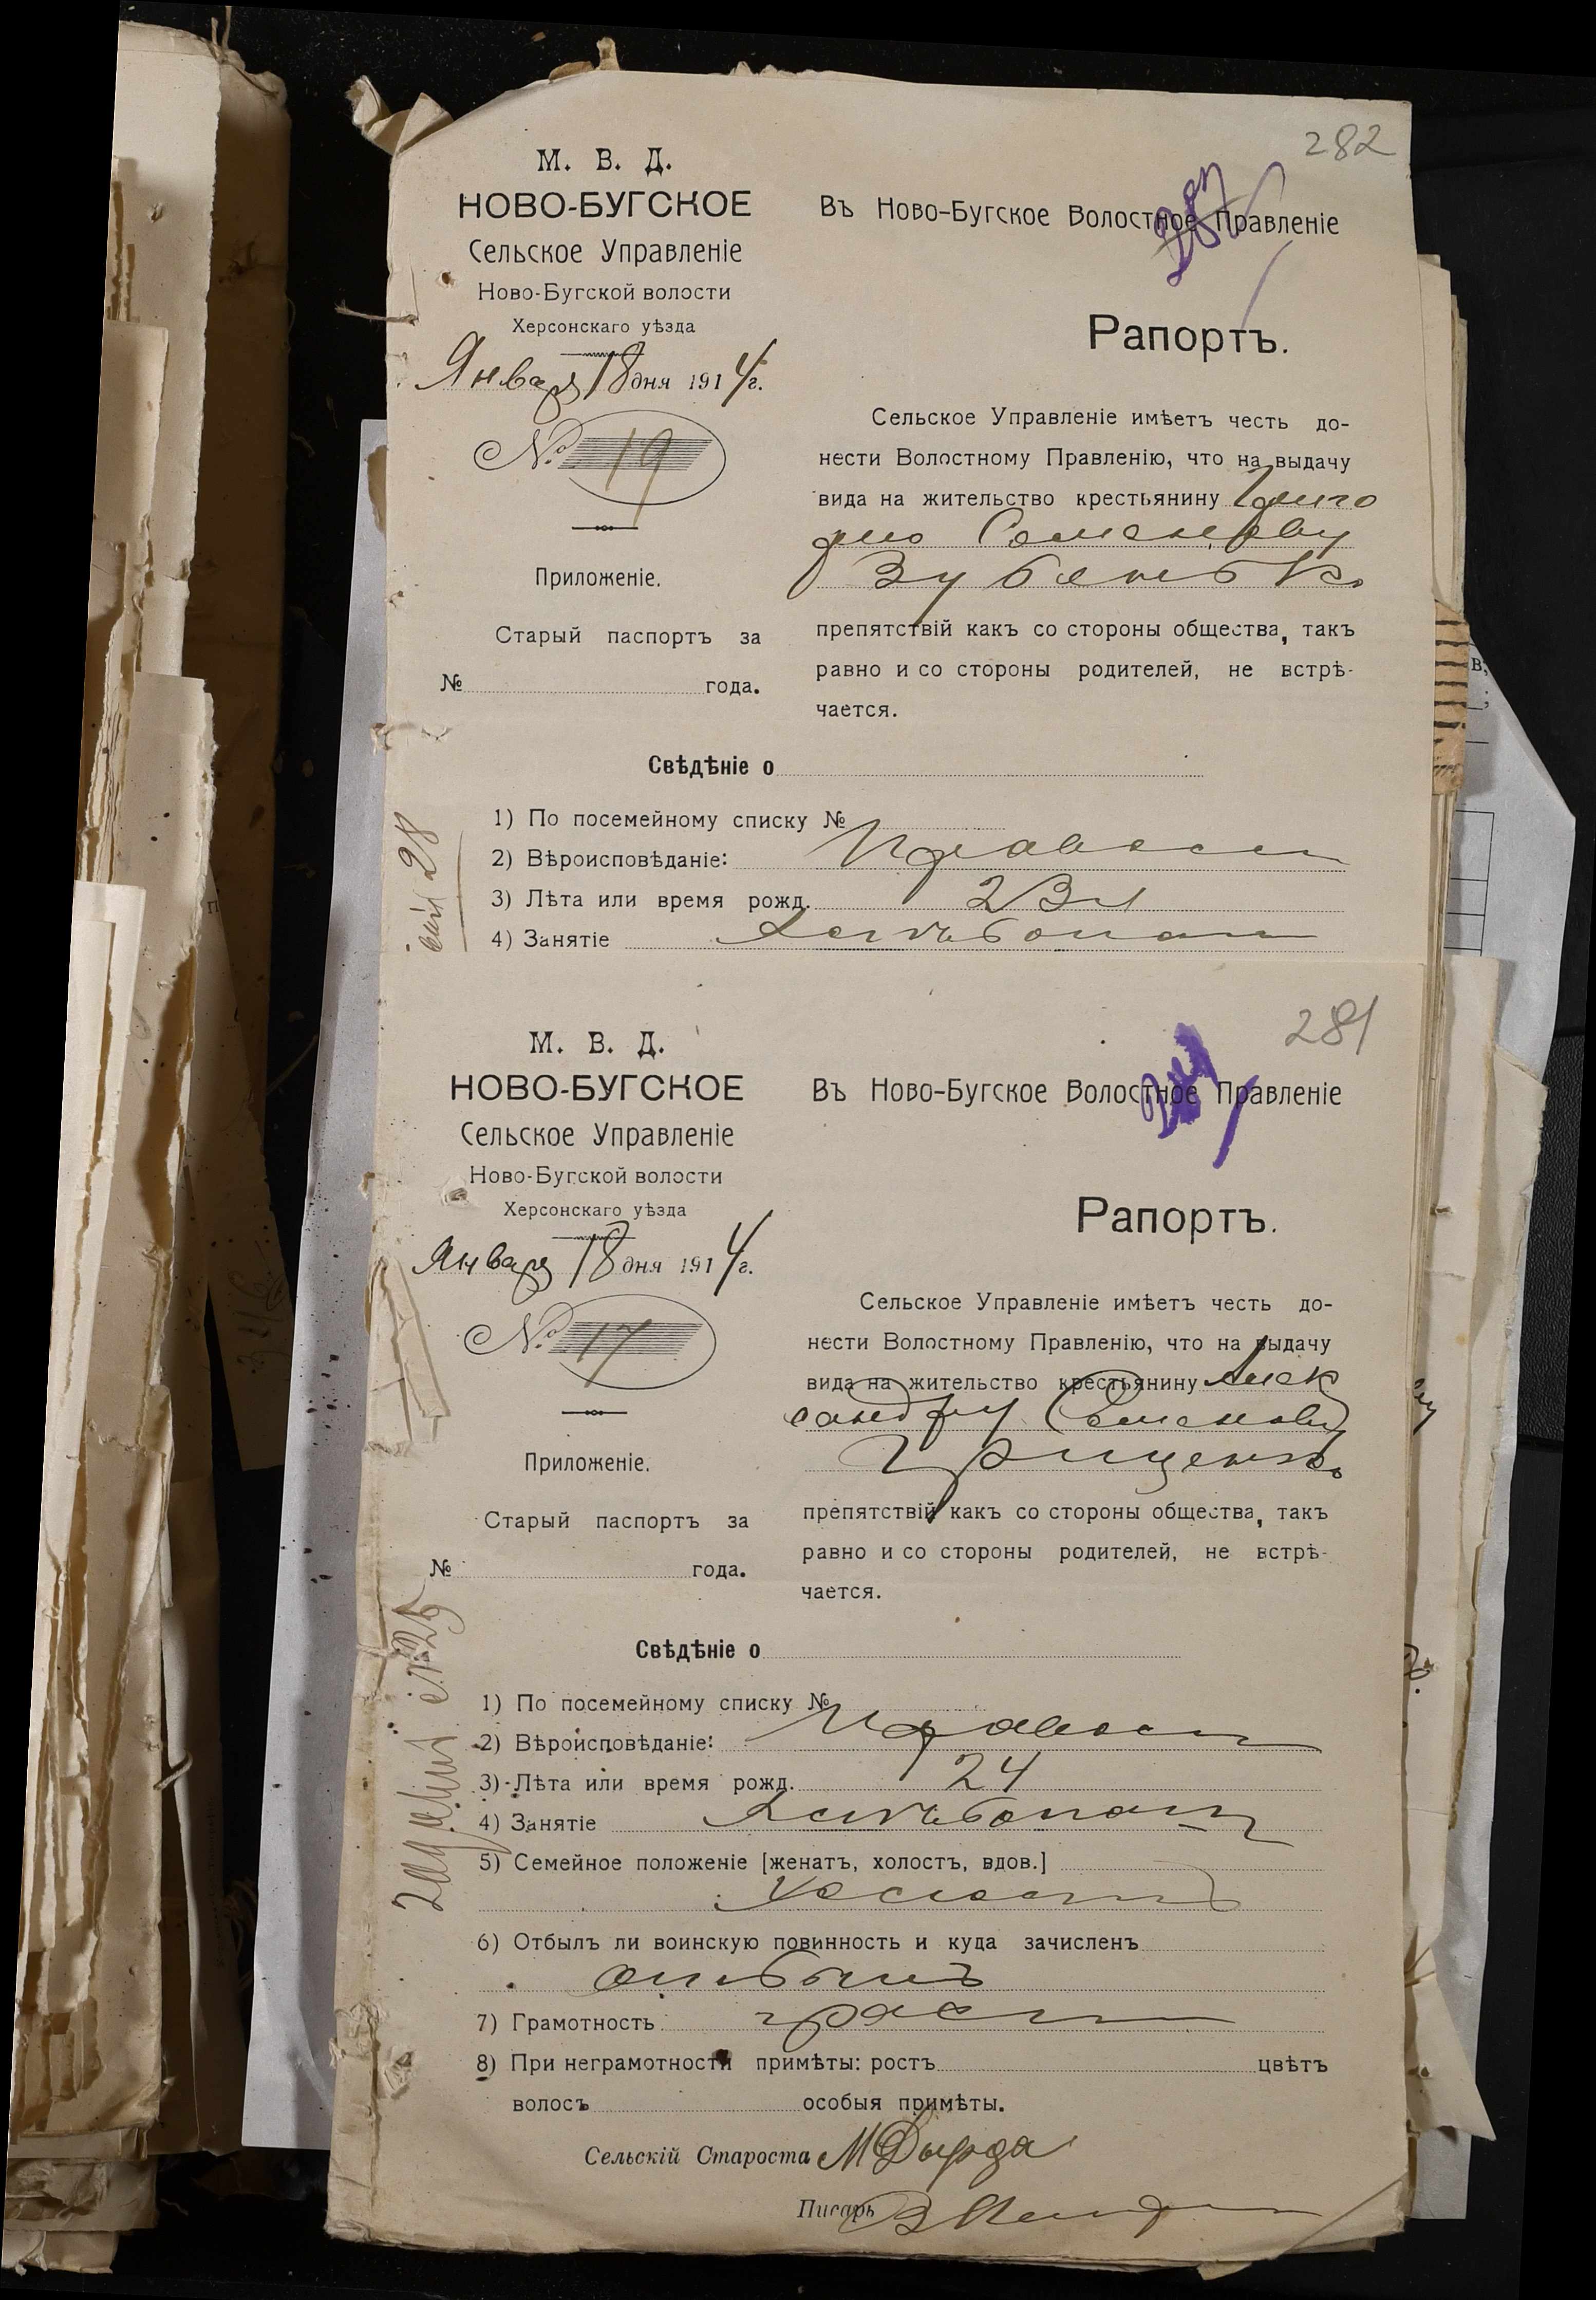 282
М. В. Д.
НОВО-БУГСКОЕ
Сельское Управленіе
Ново-Бугской волости
Херсонскаго уѣзда
Января 18 дня 1914 г.
№ 19
Приложеніе.
Старый паспортъ за
№ года.
Въ Ново-Бугское Волостное Правленіе
Рапортъ.
Сельское Управленіе имѣетъ честь до-
нести Волостному Правленію, что на выдачу
вида на жительство крестьянину Григо
рію Семенову
Зубенько
препятствій какъ со стороны общества, такъ
равно и со стороны родителей, не встрѣ-
чается.
Свѣдѣніе о
1) По посемейному списку №
2) Вѣроисповѣданіе: Правосл
3) Лѣта или время рожд. 23 л
4) Занятіе Хлѣбопаш
28
281
М. В. Д.
НОВО-БУГСКОЕ
Сельское Управленіе
Ново-Бугской волости
Херсонскаго уѣзда
Января 18 дня 1914 г.
№ 17
Приложеніе.
Старый паспортъ за
№ года.
Въ Ново-Бугское Волостное Правленіе
Рапортъ.
Сельское Управленіе имѣетъ честь до-
нести Волостному Правленію, что на выдачу
вида на жительство крестьянину Алек
сандру Семенову
Грищенко
препятствій какъ со стороны общества, такъ
равно и со стороны родителей, не встрѣ-
чается.
Свѣдѣніе о
1) По посемейному списку №
2) Вѣроисповѣданіе: Правосл
3) Лѣта или время рожд. 24
4) Занятіе Хлѣбопаш
5) Семейное положеніе [женатъ, холостъ, вдов.]
Холостъ
6) Отбылъ ли воинскую повинность и куда зачисленъ
отбылъ
7) Грамотность грам
8) При неграмотности примѣты: ростъ цвѣтъ
волосъ особыя примѣты.
Сельскій Староста М Дырда
Писарь